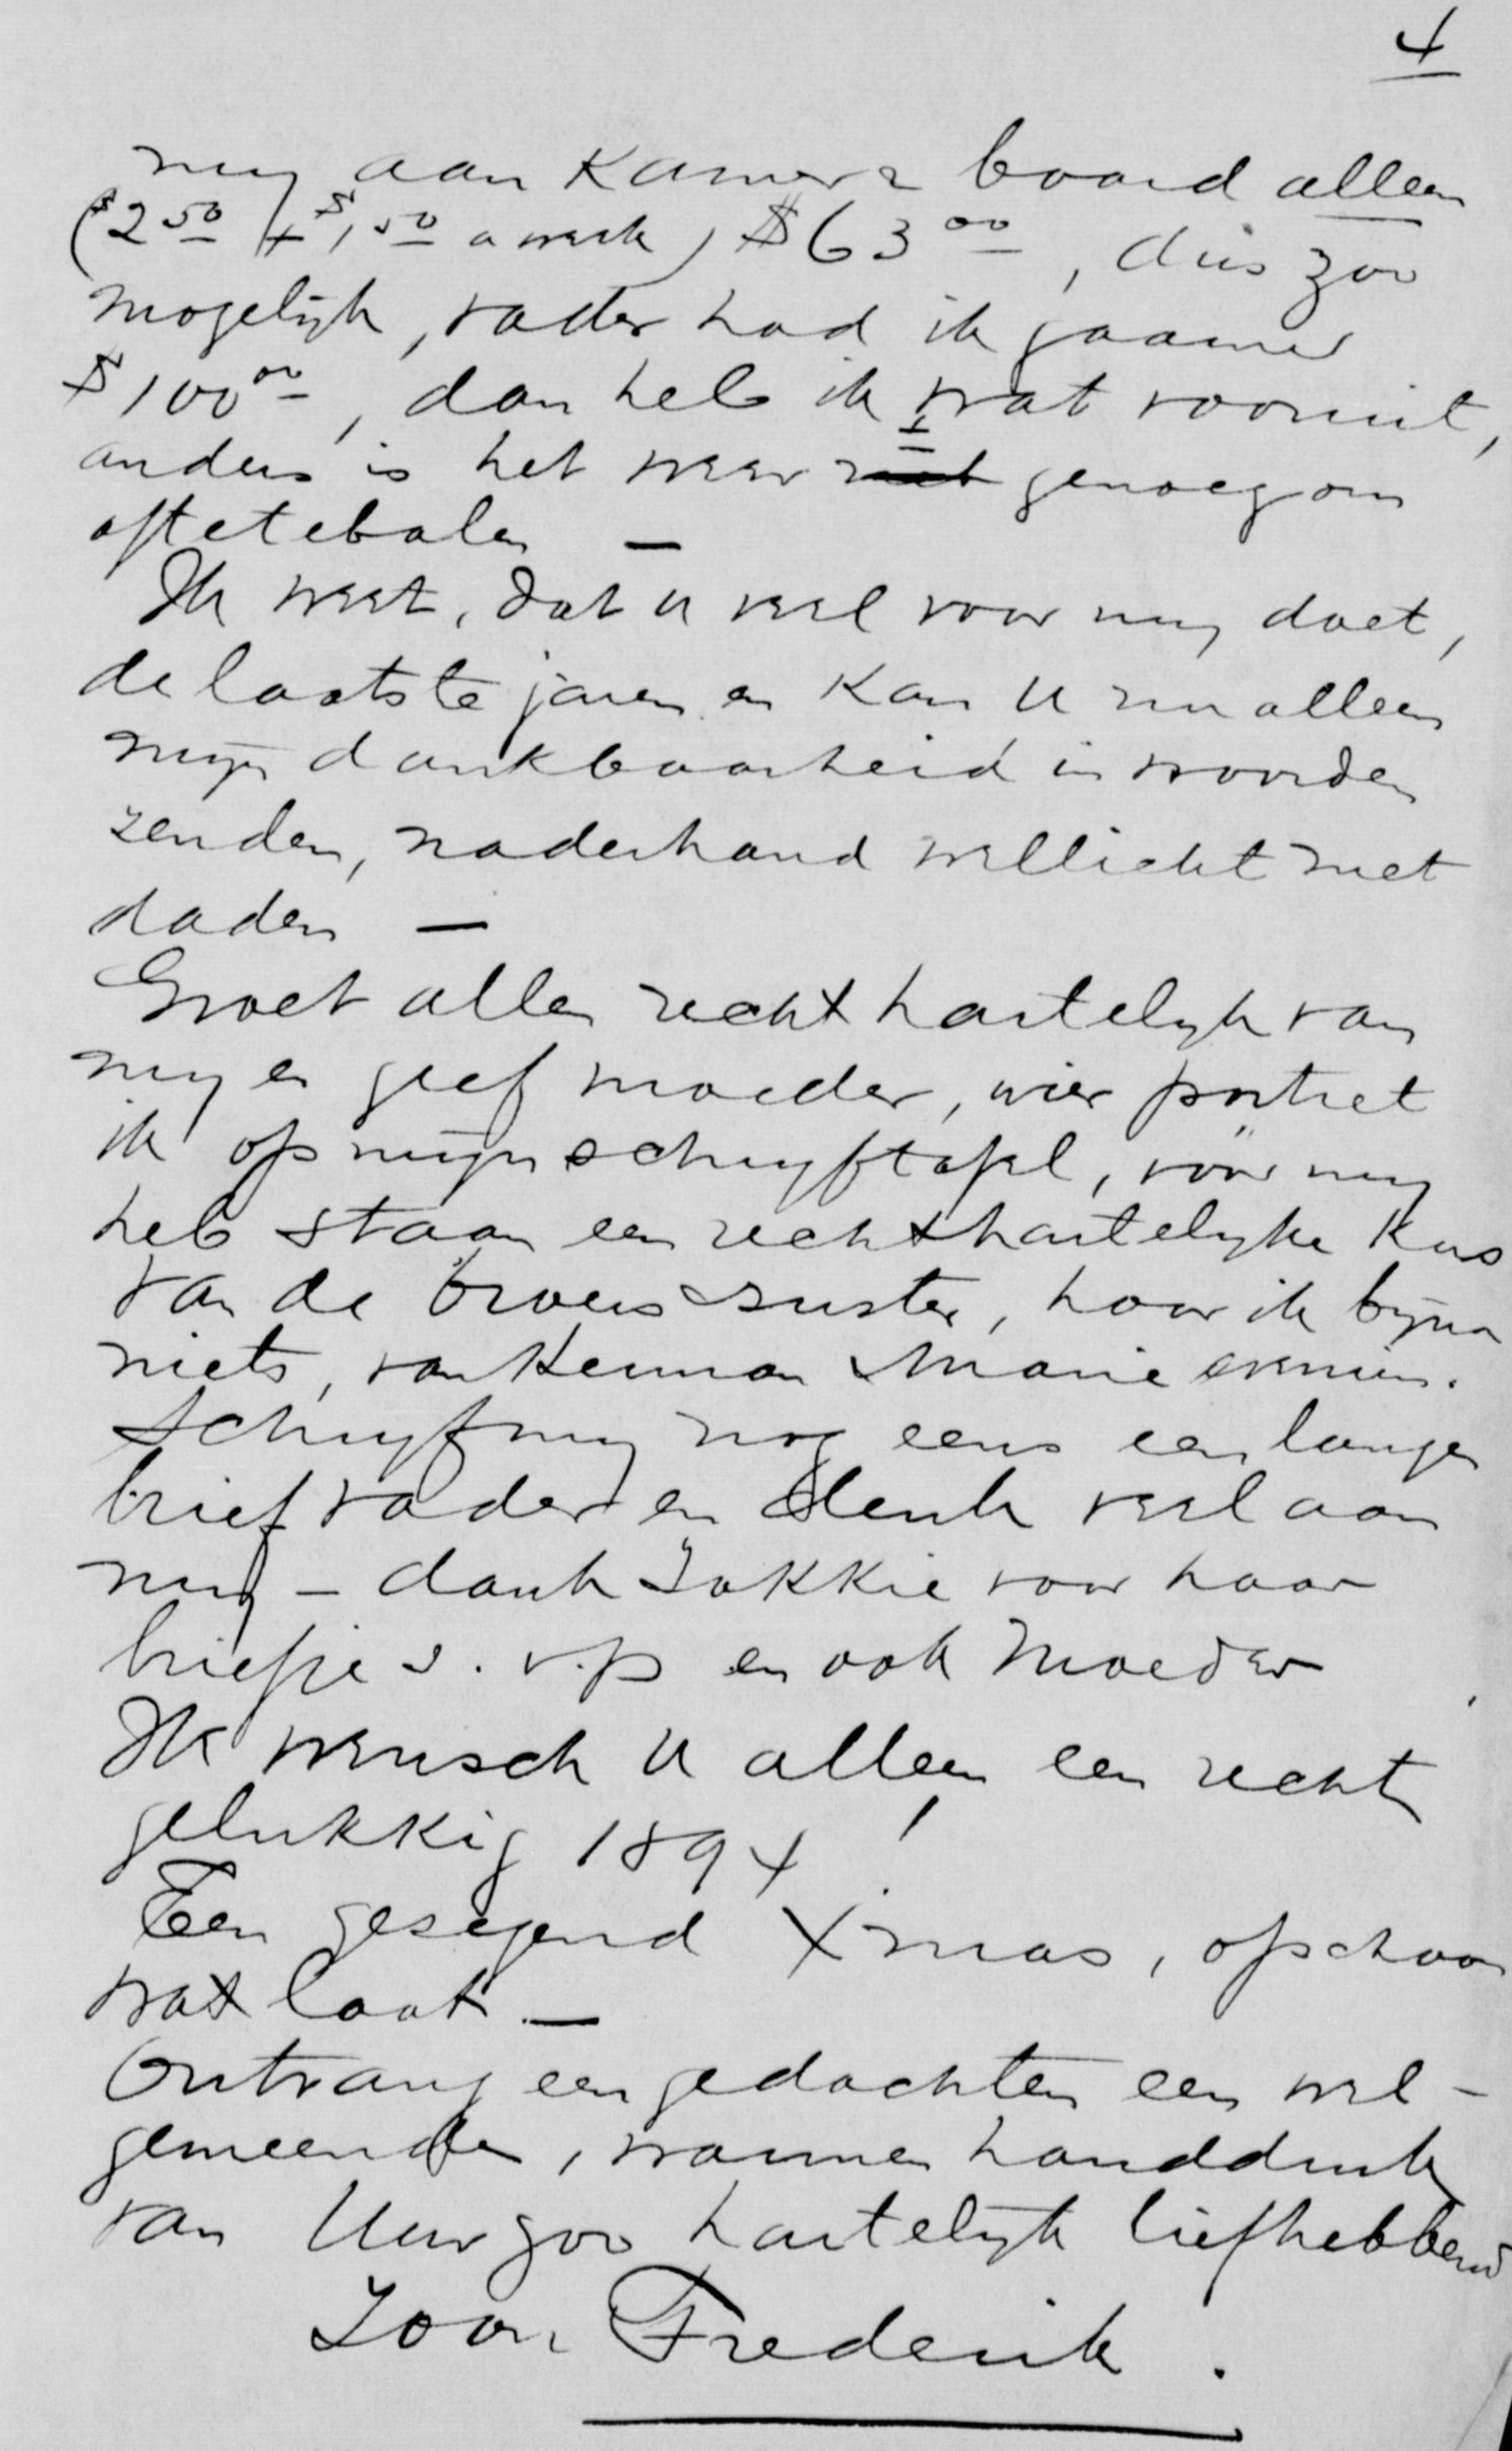 4
my aan Kamer & board alleen
($2 50 + $1 50 a week) $63 00, dus zoo
mogelyk, vader had ik gaarne
$100 00, dan heb ik wat vooruit,
anders is het weer genoeg om
aftetebalen —
Ik weet, dat u veel voor my doet,
de laatste jaren en kan U nu alleen
mijn dankbaarheid in woorden
zenden, naderhand wellicht met
daden —
Groet allen recht hartelyk van
my en geef moeder, wier portret
ik op mijn schryftafel, vóór my
heb staan een recht hartelyke kus
van de broers & zuster, hoor ik bijna
niets, van Herman & Marie evenmin.
Schryf my nog eens een langen
brief vader en denk veel aan
my – dank Jakkie voor haar
briefje s.v.p en ook Moeder
Ik wensch U allen een recht
gelukkig 1894!
Een gesegend Xmas, ofschoon
wat laat —
Ontvang een gedachten een wel-
gemeenden, warmen handdruk
van Uw zoo hartelyk liefhebbend
Zoon Frederik.